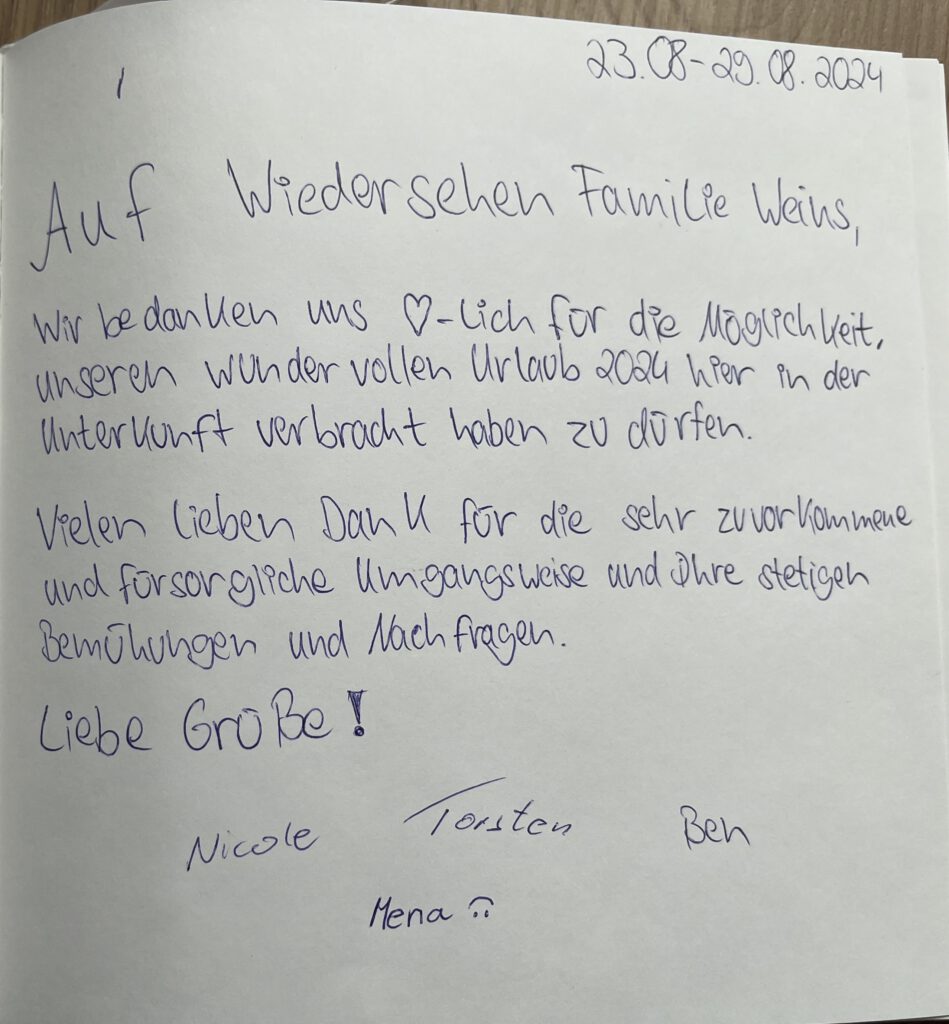 23.08-29.08.2024
Auf Wiedersehen Familie Weins,
Wir bedanken uns ♡-lich für die Möglichkeit,
unseren wundervollen Urlaub 2024 hier in der
Unterkunft verbracht haben zu dürfen.
Vielen lieben Dank für die sehr zuvorkommene
und fürsorgliche Umgangsweise und Ihre stetigen
Bemühungen und Nachfragen.
Liebe Grüße!
Nicole Torsten Ben
Mena